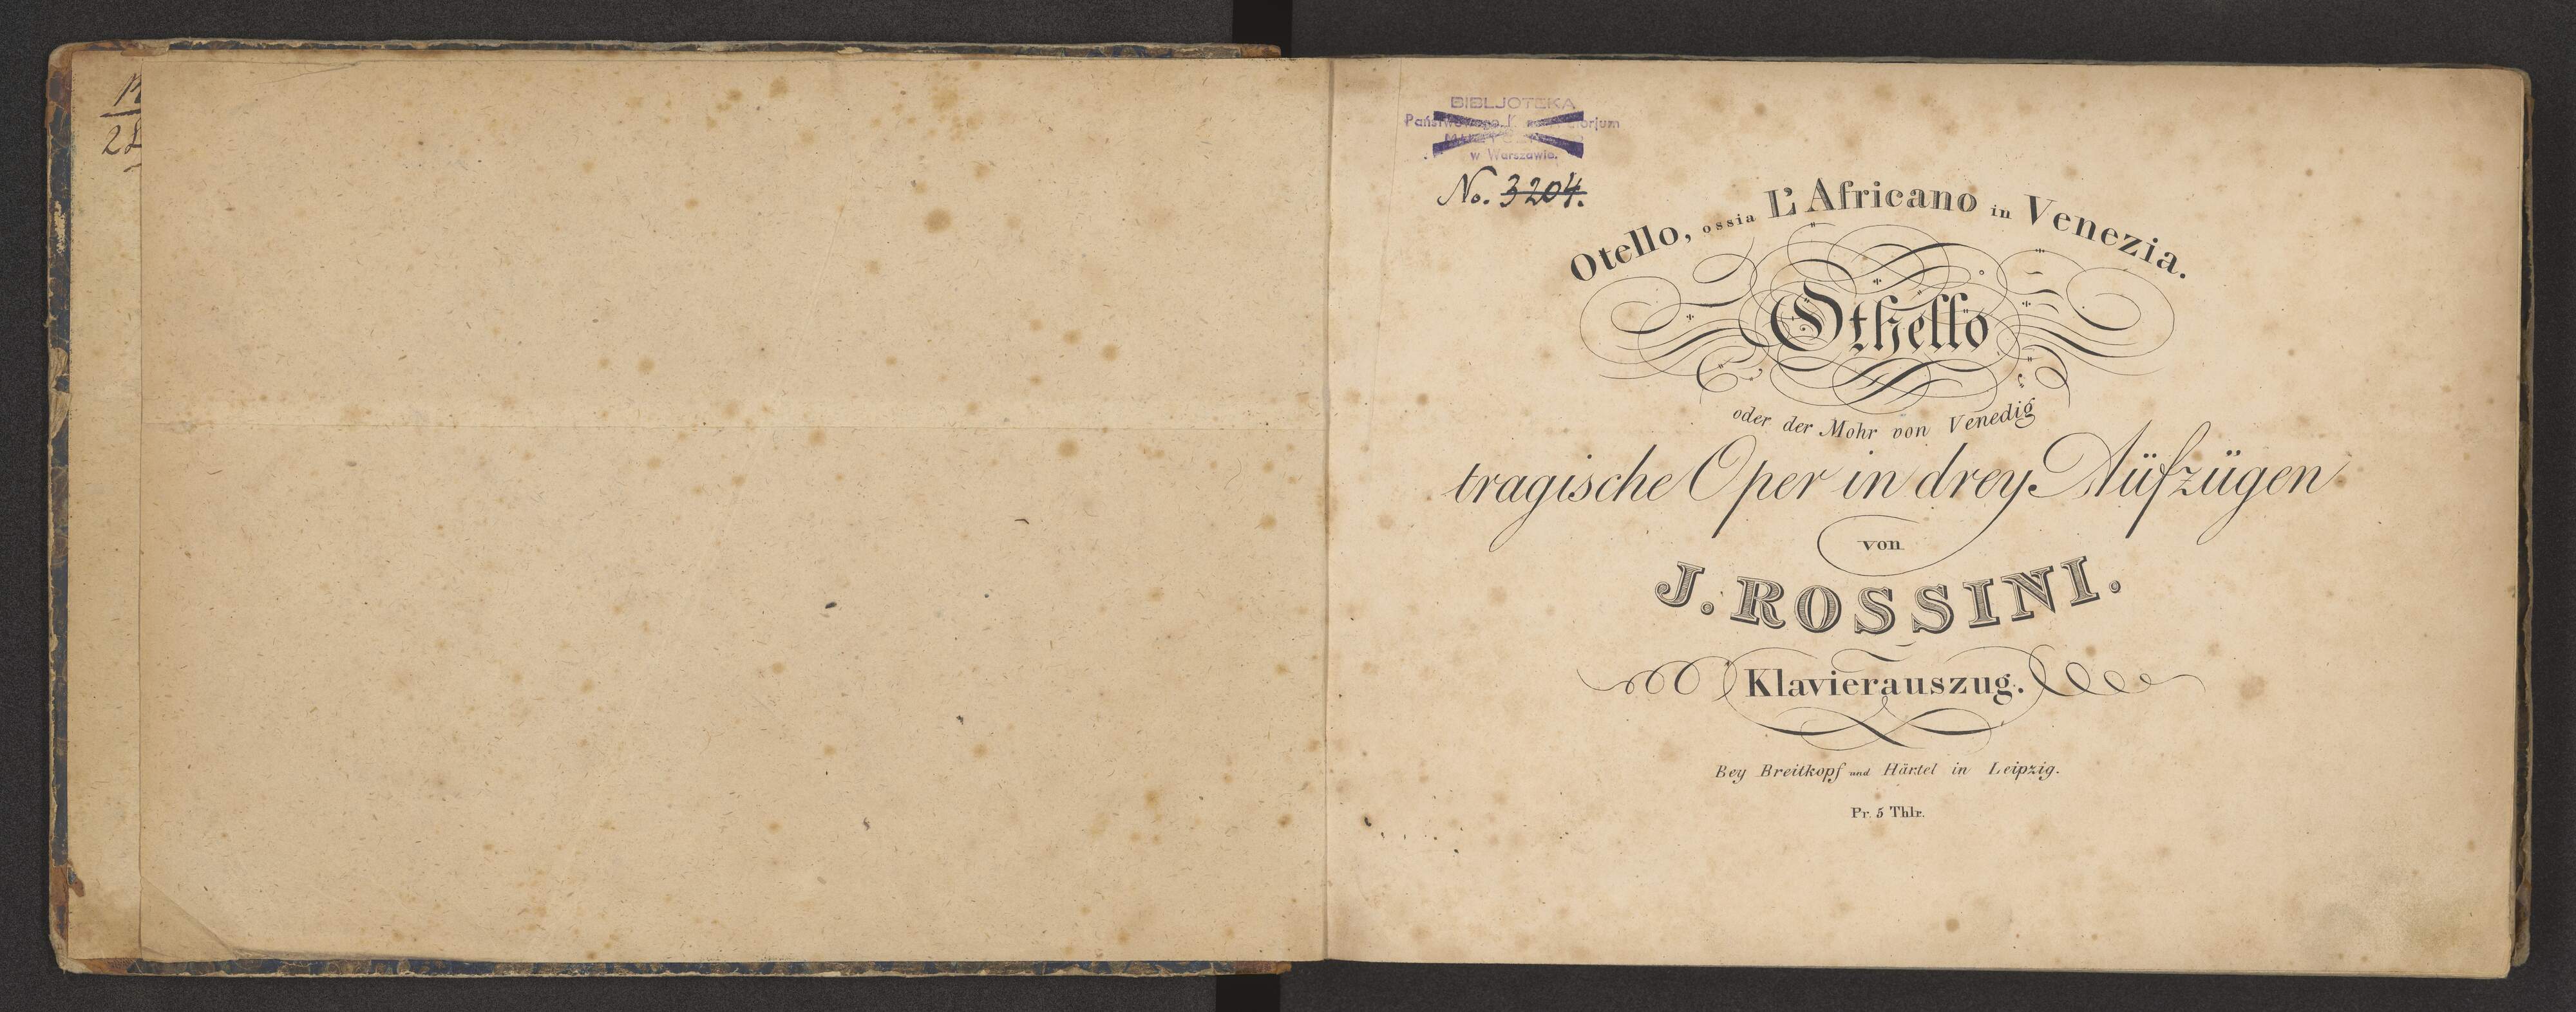 BIBLJOTEKA
w Warszawie.
No. 3204.
Otello, ossia L'Africano in Venezia.
Othello
oder der Mohr von Venedig
tragische Oper in drey Aüfzügen
von
J. ROSSINI.
Klavierauszug.
Bey Breitkopf und Härtel in Leipzig.
Pr. 5 Thlr.